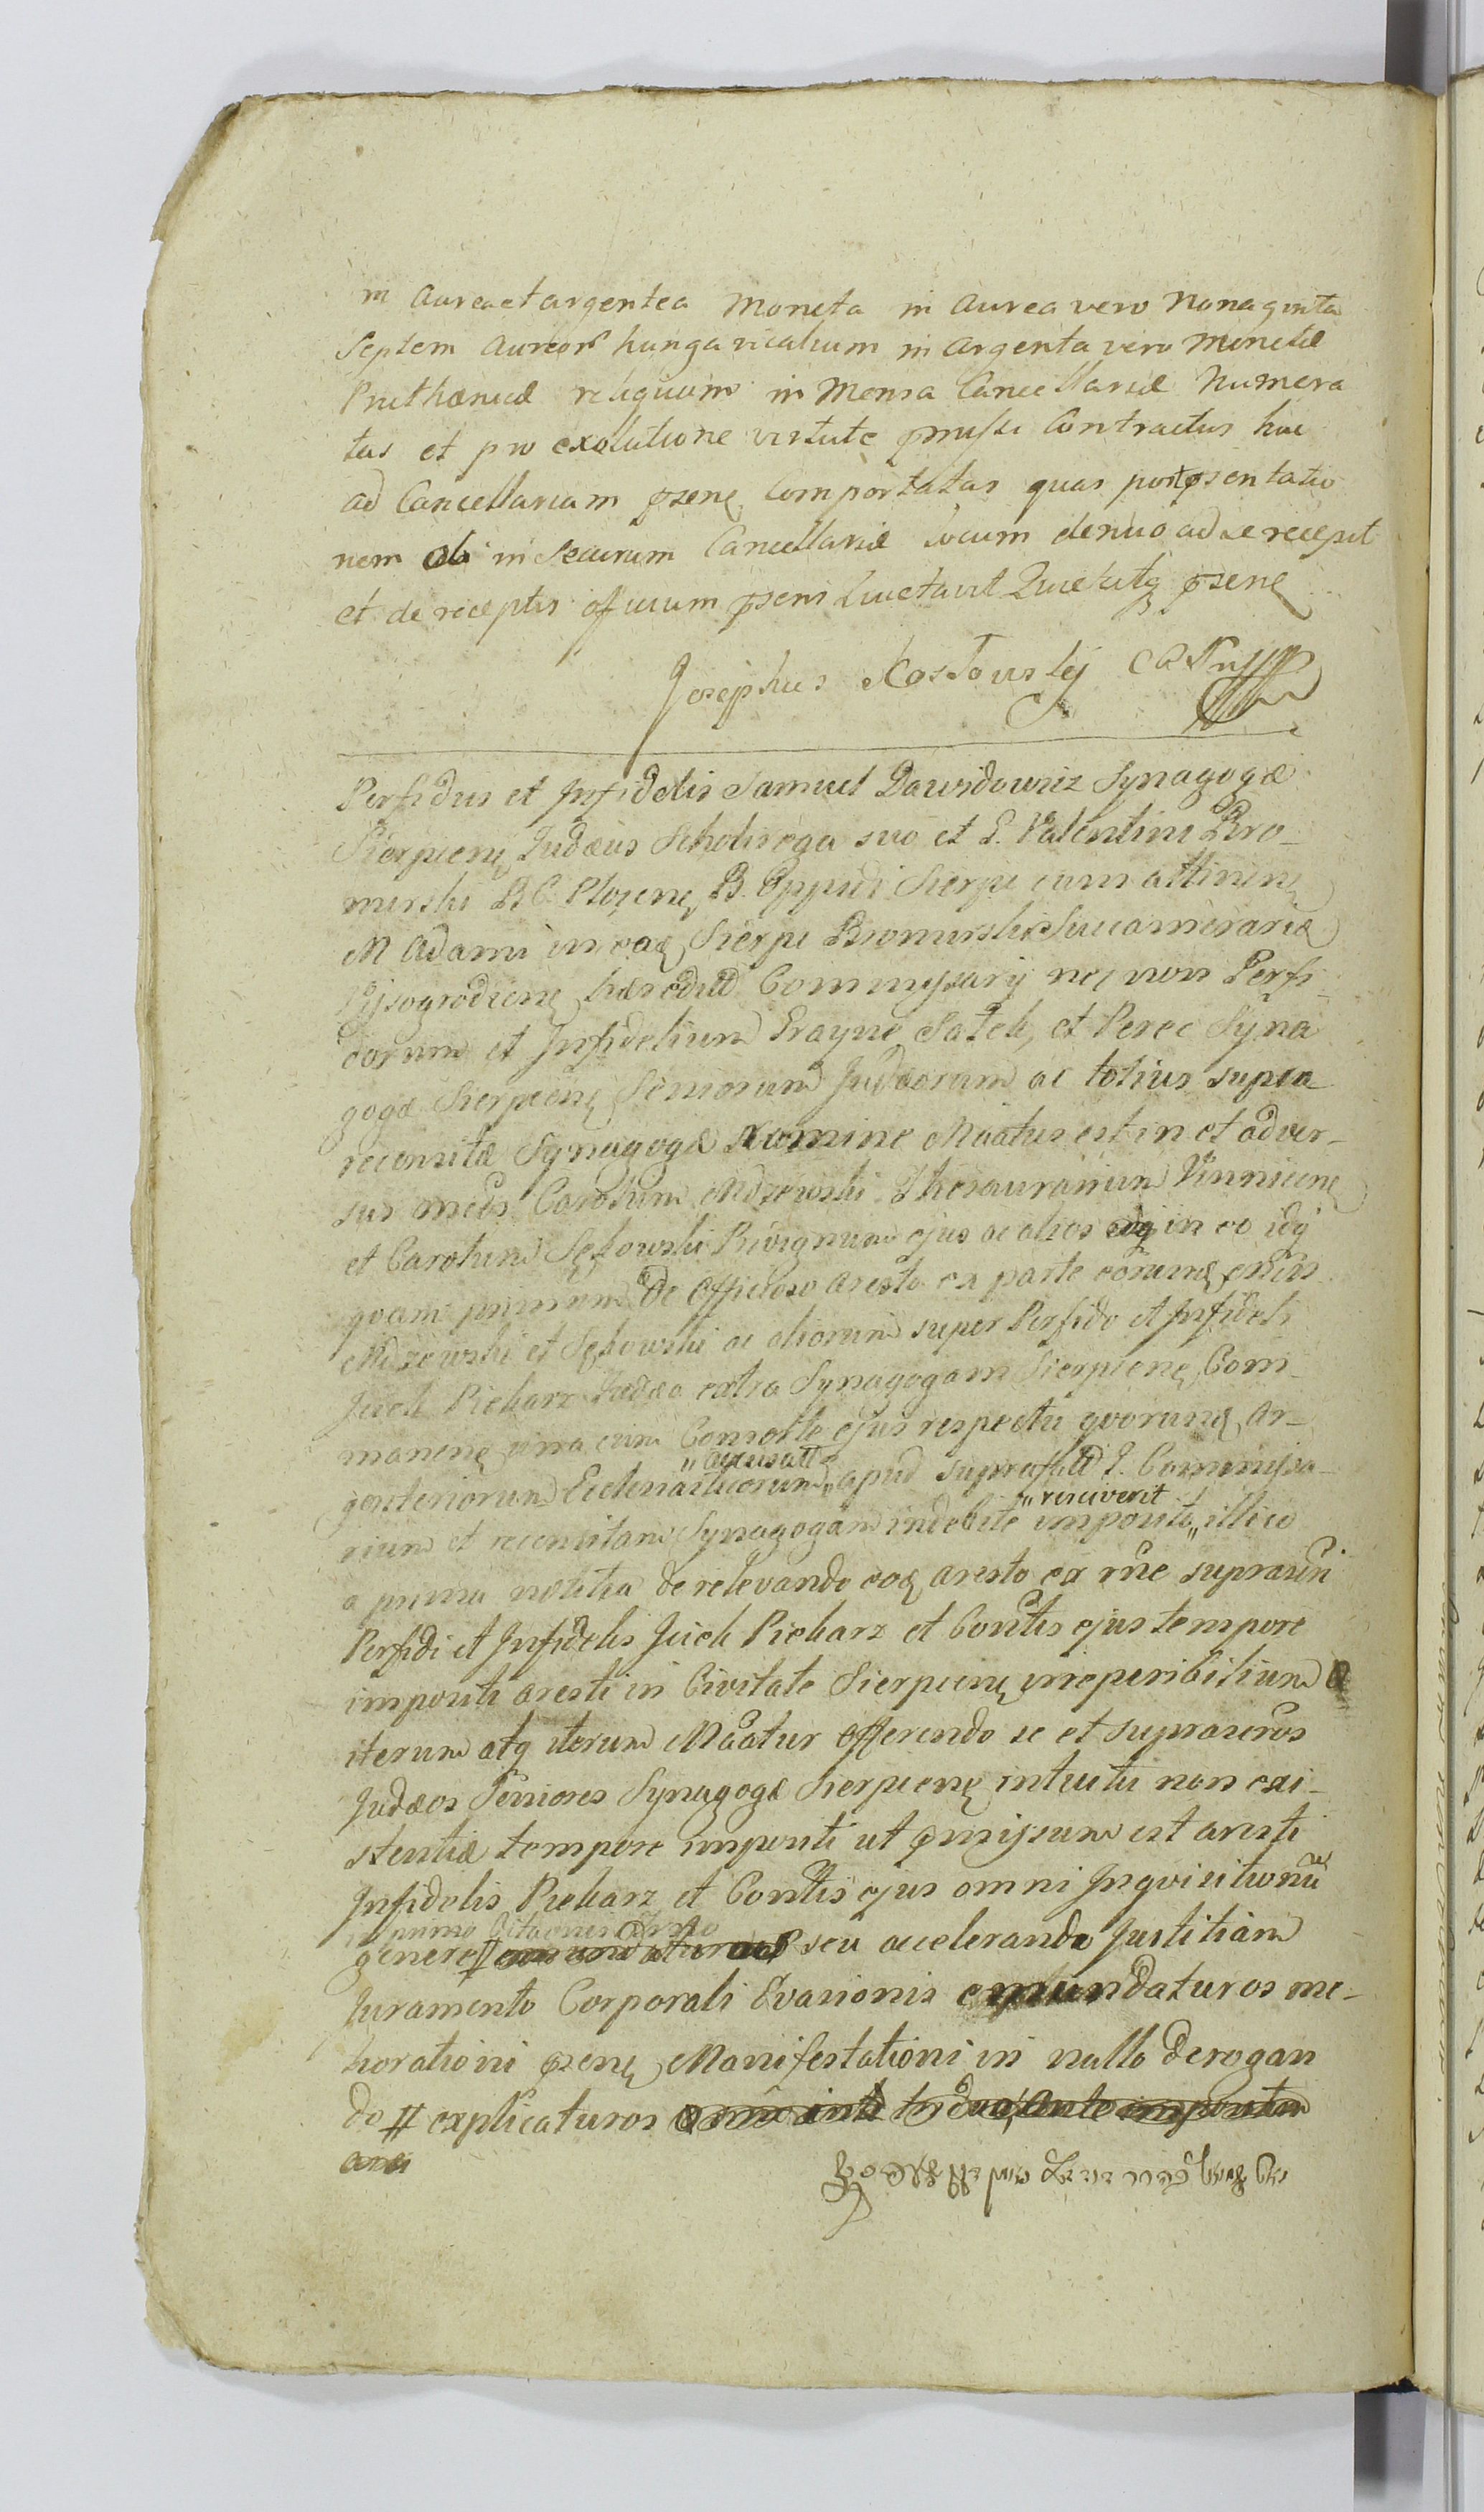 in Aurea et argentea Moneta in Aurea vero Nonaginta
Septem Aureor hungaricalium in argenta vero Monetæ
Pruthenicæ reliquum in Mensa Cancellariæ Numera
tas et pro exolutione virtute pmissi Contractus huc
ad Cancellariam psenę Comportatas quas post psentatio
nem in Securum Cancellariæ locum denuo ad se recepit
et de receptis officium psens Quietavit Quietatq psenę
Josephus Kostowskj
Perfidus et Infidelis Samuel Dawidowicz Synagogæ
Sierpcenę Judæus Scholirega suo et G. Valentini Bro_
mirski B. C. Plocenę B. Oppidi Sierpc cum attinenę
M Adami in eadę Sierpc Bromirski Succamerariæ
Vysogrodienę hæreditꝫ Commissarij nec non Perfi_
dorum et Infidelium Szayne Satek, et Perec Syna
gogæ Sierpcenę Seniorum Judæorum ac totius supra
recensitæ Synagogæ Nomine Maatus est in et adver_
sus mcos Carolum Mdzewski Thesaurarium Vinnicenę
et Carolum Sękowski Privignum ejus ac alios in eo idq
quam primum de Officioso aresto ex parte eorumę
Mdzewski et Sękowski ac aliorum super Perfido et Infideli
Jicek Piekarz Judæo extra Synagogam Sierpcenę Com_
manenę una cum Consorte ejus respectu quorumę ar_
genteriorum Ecclesiasticorum,, apud suprafatꝫ G. Commissa_
rium et recensitam Synagogam indebite imposito,, illico
,, resciverit
a prima notitia de relevando eoę aresto ex rne
Perfidi et Infidelis Jicek Piekarz et Contis ejus tempore
impositi aresti in Civitate Sierpcenę irreperibilium
iterum atq iterum Maatur offerendo se et
Judæos Seniores Synagogæ Sierpcenę intuitu non exi_
stentiæ tempore impositi ut pmissum est aresti
Infidelis Piekarz et Contis ejus omni Inquisitionū
genere seu accelerando Justitiam
Juramento Corporali Evasionis emundaturos me_
liorationi psenę Manifestationi in nullo derogan
do # explicaturos